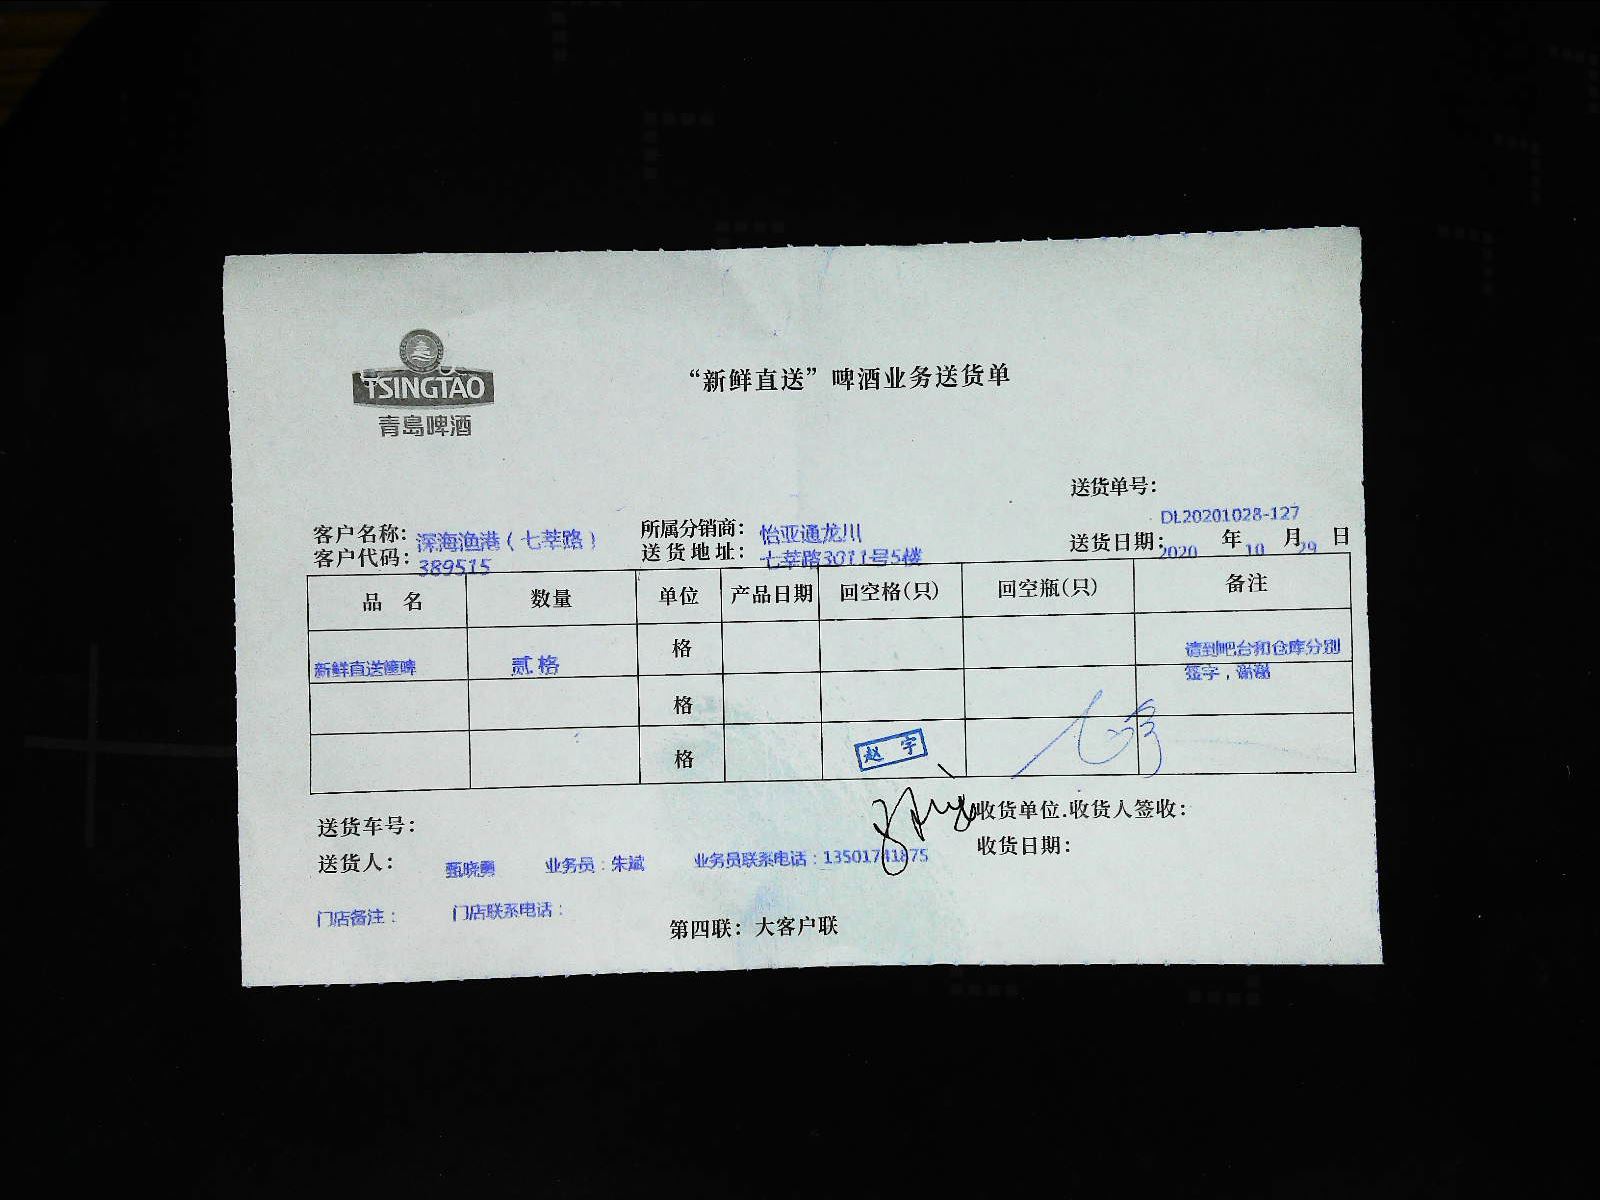 TSINGTAO
青岛啤酒
“新鲜直送”啤酒业务送货单
送货单号：
DL20201028-127
客户名称：深海渔港（七莘路） 所属分销商：怡亚通龙川
客户代码：389515 送货地址：七莘路3011号5楼 送货日期：2020 年 10 月 29 日
品 名 数量 单位 产品日期 回空格(只) 回空瓶(只) 备注
新鲜直送箱啤 贰格 格 请到吧台和仓库分别
签字，谢谢
格
格 赵 宇
送货车号： 收货单位.收货人签收：
收货日期：
送货人： 甄晓勇 业务员：朱斌 业务员联系电话：13501741875
门店备注： 门店联系电话：
第四联：大客户联